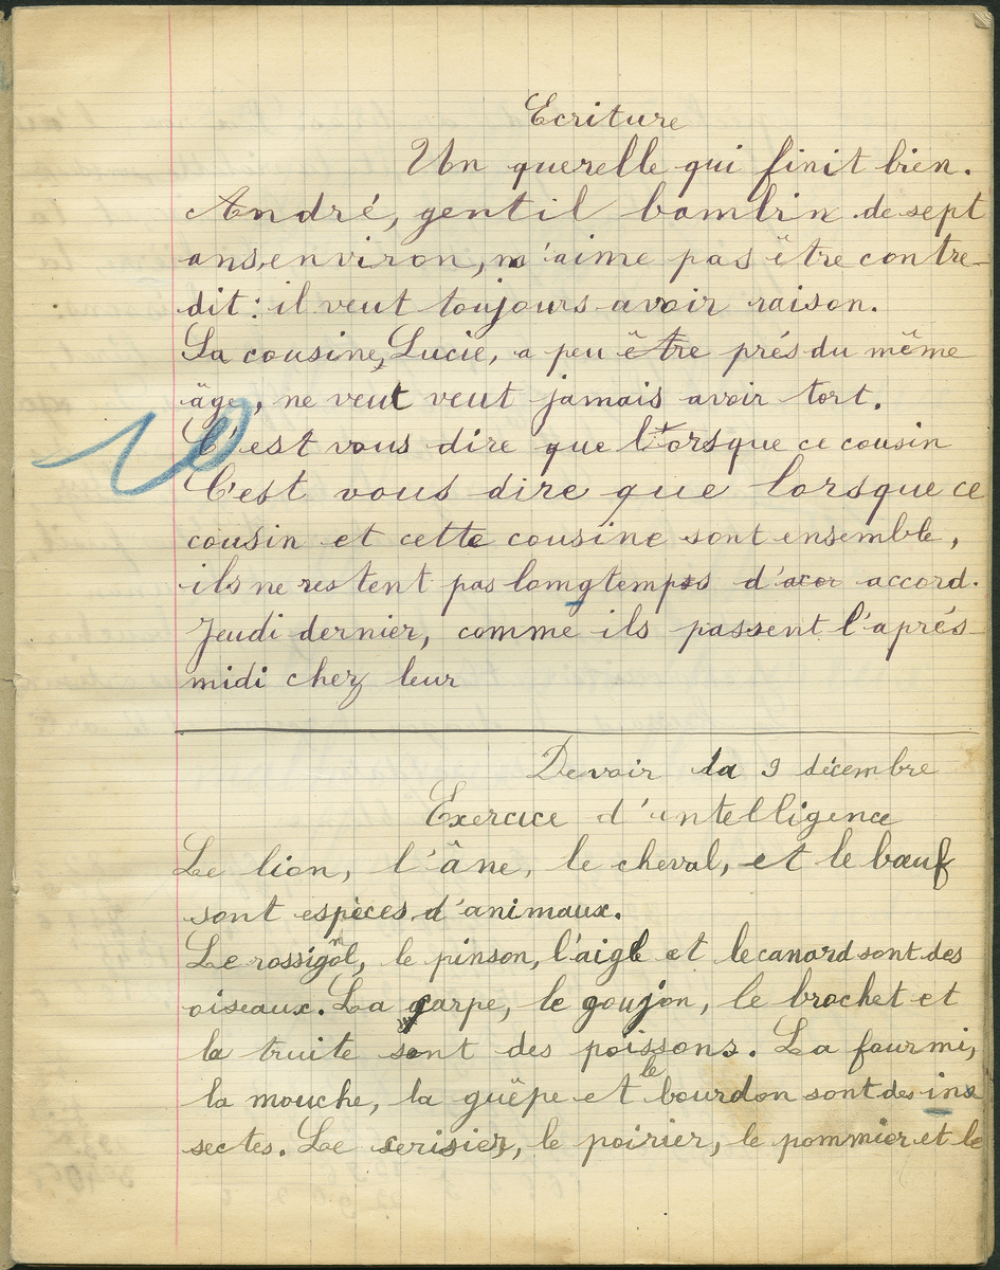 Ecriture
Un querelle qui finit bien.
André, gentil bambin de sept
ans, environ, n'aime pas être contre-
dit : il veut toujours avoir raison.
Sa cousine, Lucie, a peu être prés du même
âge, ne veut veut jamais avoir tort.
C'est vous dire que l'torsque ce cousin
C'est vous dire que lorsque ce
cousin et cette cousine sont ensemble,
ils ne restent pas lomgtemps d'acor accord.
Jeudi dernier, comme ils passent l'aprés-
midi chez leur
Devoir da 9 décembre
Exercice d'intelligence
Le lion, l'âne, le cheval, et le bœuf
sont espèces d'animaux.
Le rossignol, le pinson, l'aigle et le canard sont des
oiseaux. La carpe, le goujon, le brochet et
la truite sont des poissons. La fourmi,
la mouche, la guêpe et le bourdon sont des ins
sectes. Le serisier, le poirier, le pommier et le